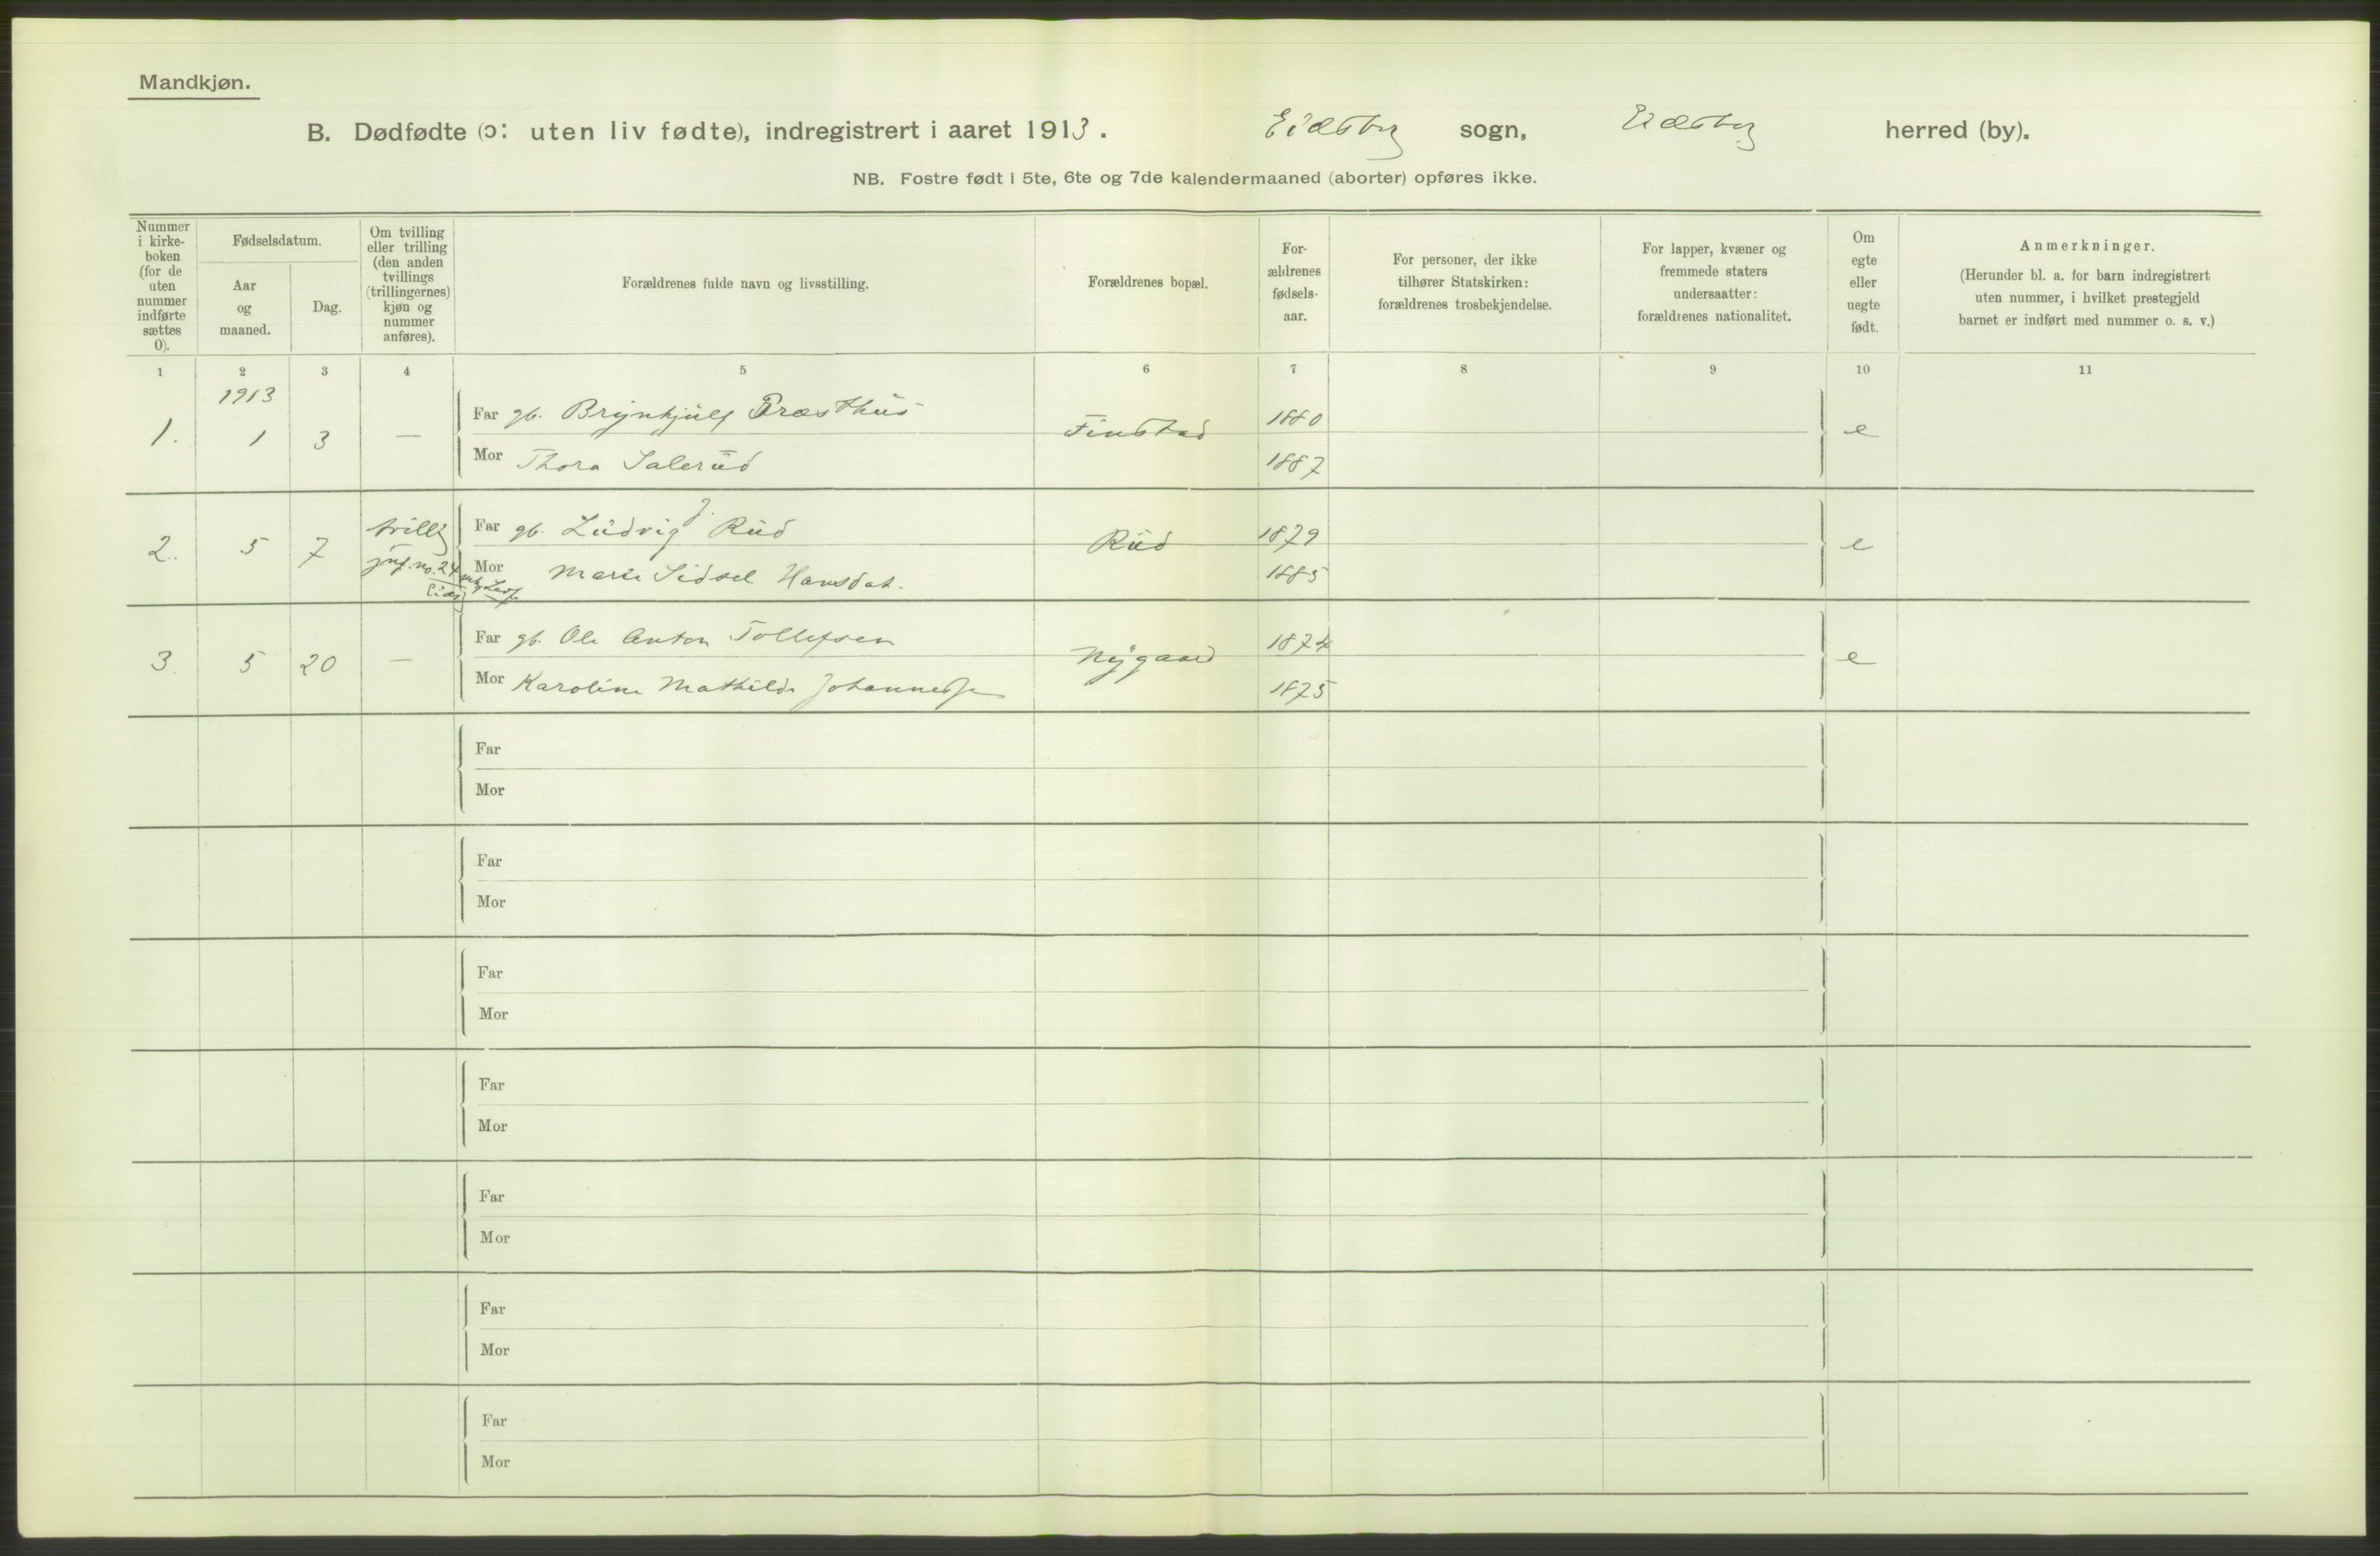 Mandkjøn.
B. Dødfødte (ɔ: uten liv fødte), indregistrert i aaret 1913. Eidsbg sogn, Eidsbg herred (by).
NB. Fostre født i 5te, 6te og 7de kalendermaaned (aborter) opføres ikke.
Nummer
i kirke-
boken
(for de
uten
nummer
indførte
sættes
0).
Fødselsdatum.
Aar
og
maaned.
Dag.
Om tvilling
eller trilling
(den anden
tvillings
(trillingernes)
kjøn og
nummer
anføres).
Forældrenes fulde navn og livsstilling.
Forældrenes bopæl.
For-
ældrenes
fødsels-
aar.
For personer, der ikke
tilhører Statskirken:
forældrenes trosbekjendelse.
For lapper, kvæner og
fremmede staters
undersaatter:
forældrenes nationalitet.
Om
egte
eller
uegte
født.
Anmerkninger.
(Herunder bl. a. for barn indregistrert
uten nummer, i hvilket prestegjeld
barnet er indført med nummer o. s. v.)
1 2 3 4 5 6 7 8 9 10 11
1913
1. 1 3 — Far gb. Brynhjulf Præsthus Finstad 1880 e
Mor Thora Salerud 1887
2. 5 7 Far gb. Ludvig J. Rud Rud 1879 e
no. 24
Mor Marie Sidsel Hansdat. 1885
3. 5 20 — Far gb. Ole Anton Tollefsen Nygaard 1874 e
Mor Karoline Mathilde 1875
Far
Mor
Far
Mor
Far
Mor
Far
Mor
Far
Mor
Far
Mor
Far
Mor